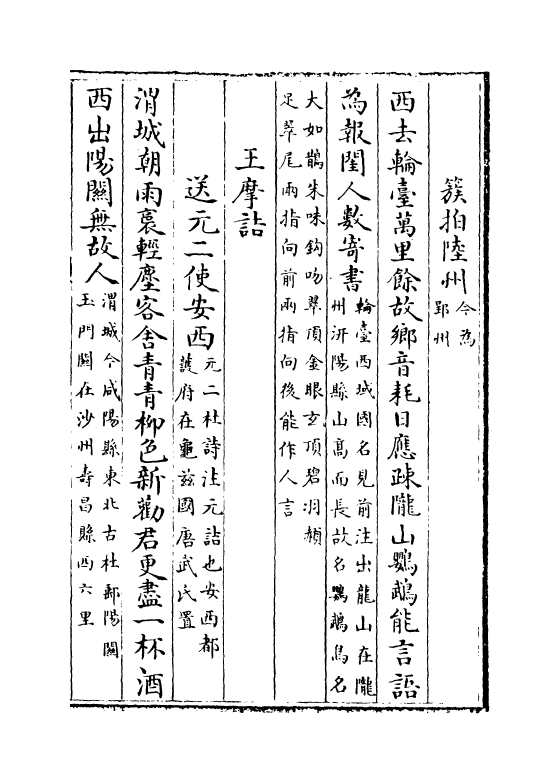 簇拍陸州今為
郢州
西去輪臺萬里餘故鄉音耗日應疎隴山鸚鵡能言語
為報閨人數寄書輪臺西域國名見前注出龍山在隴
州汧陽縣山髙而長故名鸚鵡鳥名
大如鵲朱咮鈎吻翠頂金眼玄頂碧羽頳
足翠尾兩指向前兩指向後能作人言
王摩詰
送元二使安西元二杜詩注元詰也安西都
護府在龜兹國唐武氏置
渭城朝雨裛輕塵客舍青青柳色新勸君更盡一杯酒
西出陽關無故人渭城今咸陽縣東北古杜郵陽關
玉門關在沙州壽昌縣西六里